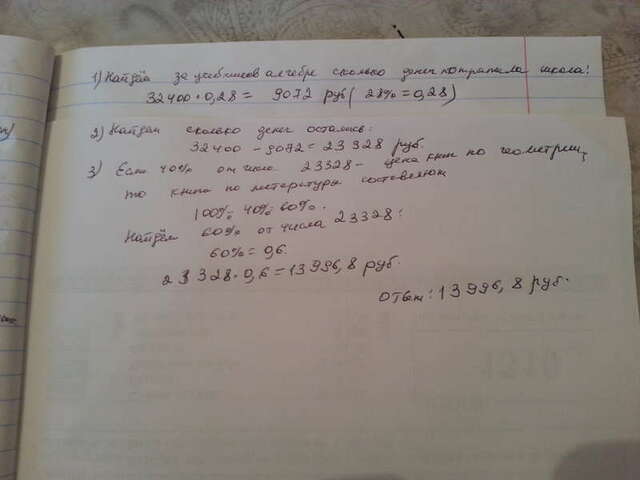 1) Найдём за учебников алгебре сколько денег потратила школа:
32400 · 0,28 = 9072 руб ( 28% = 0,28)
2) Найдём сколько денег осталось:
32400 - 9072 = 23328 руб.
3) Если 40% от числа 23328 - цена книг по геометрии,
то книги по литературы составляют
100% - 40% = 60%.
Найдём 60% от числа 23328:
60% = 0,6.
23328 · 0,6 = 13996,8 руб.
Ответ: 13996,8 руб.